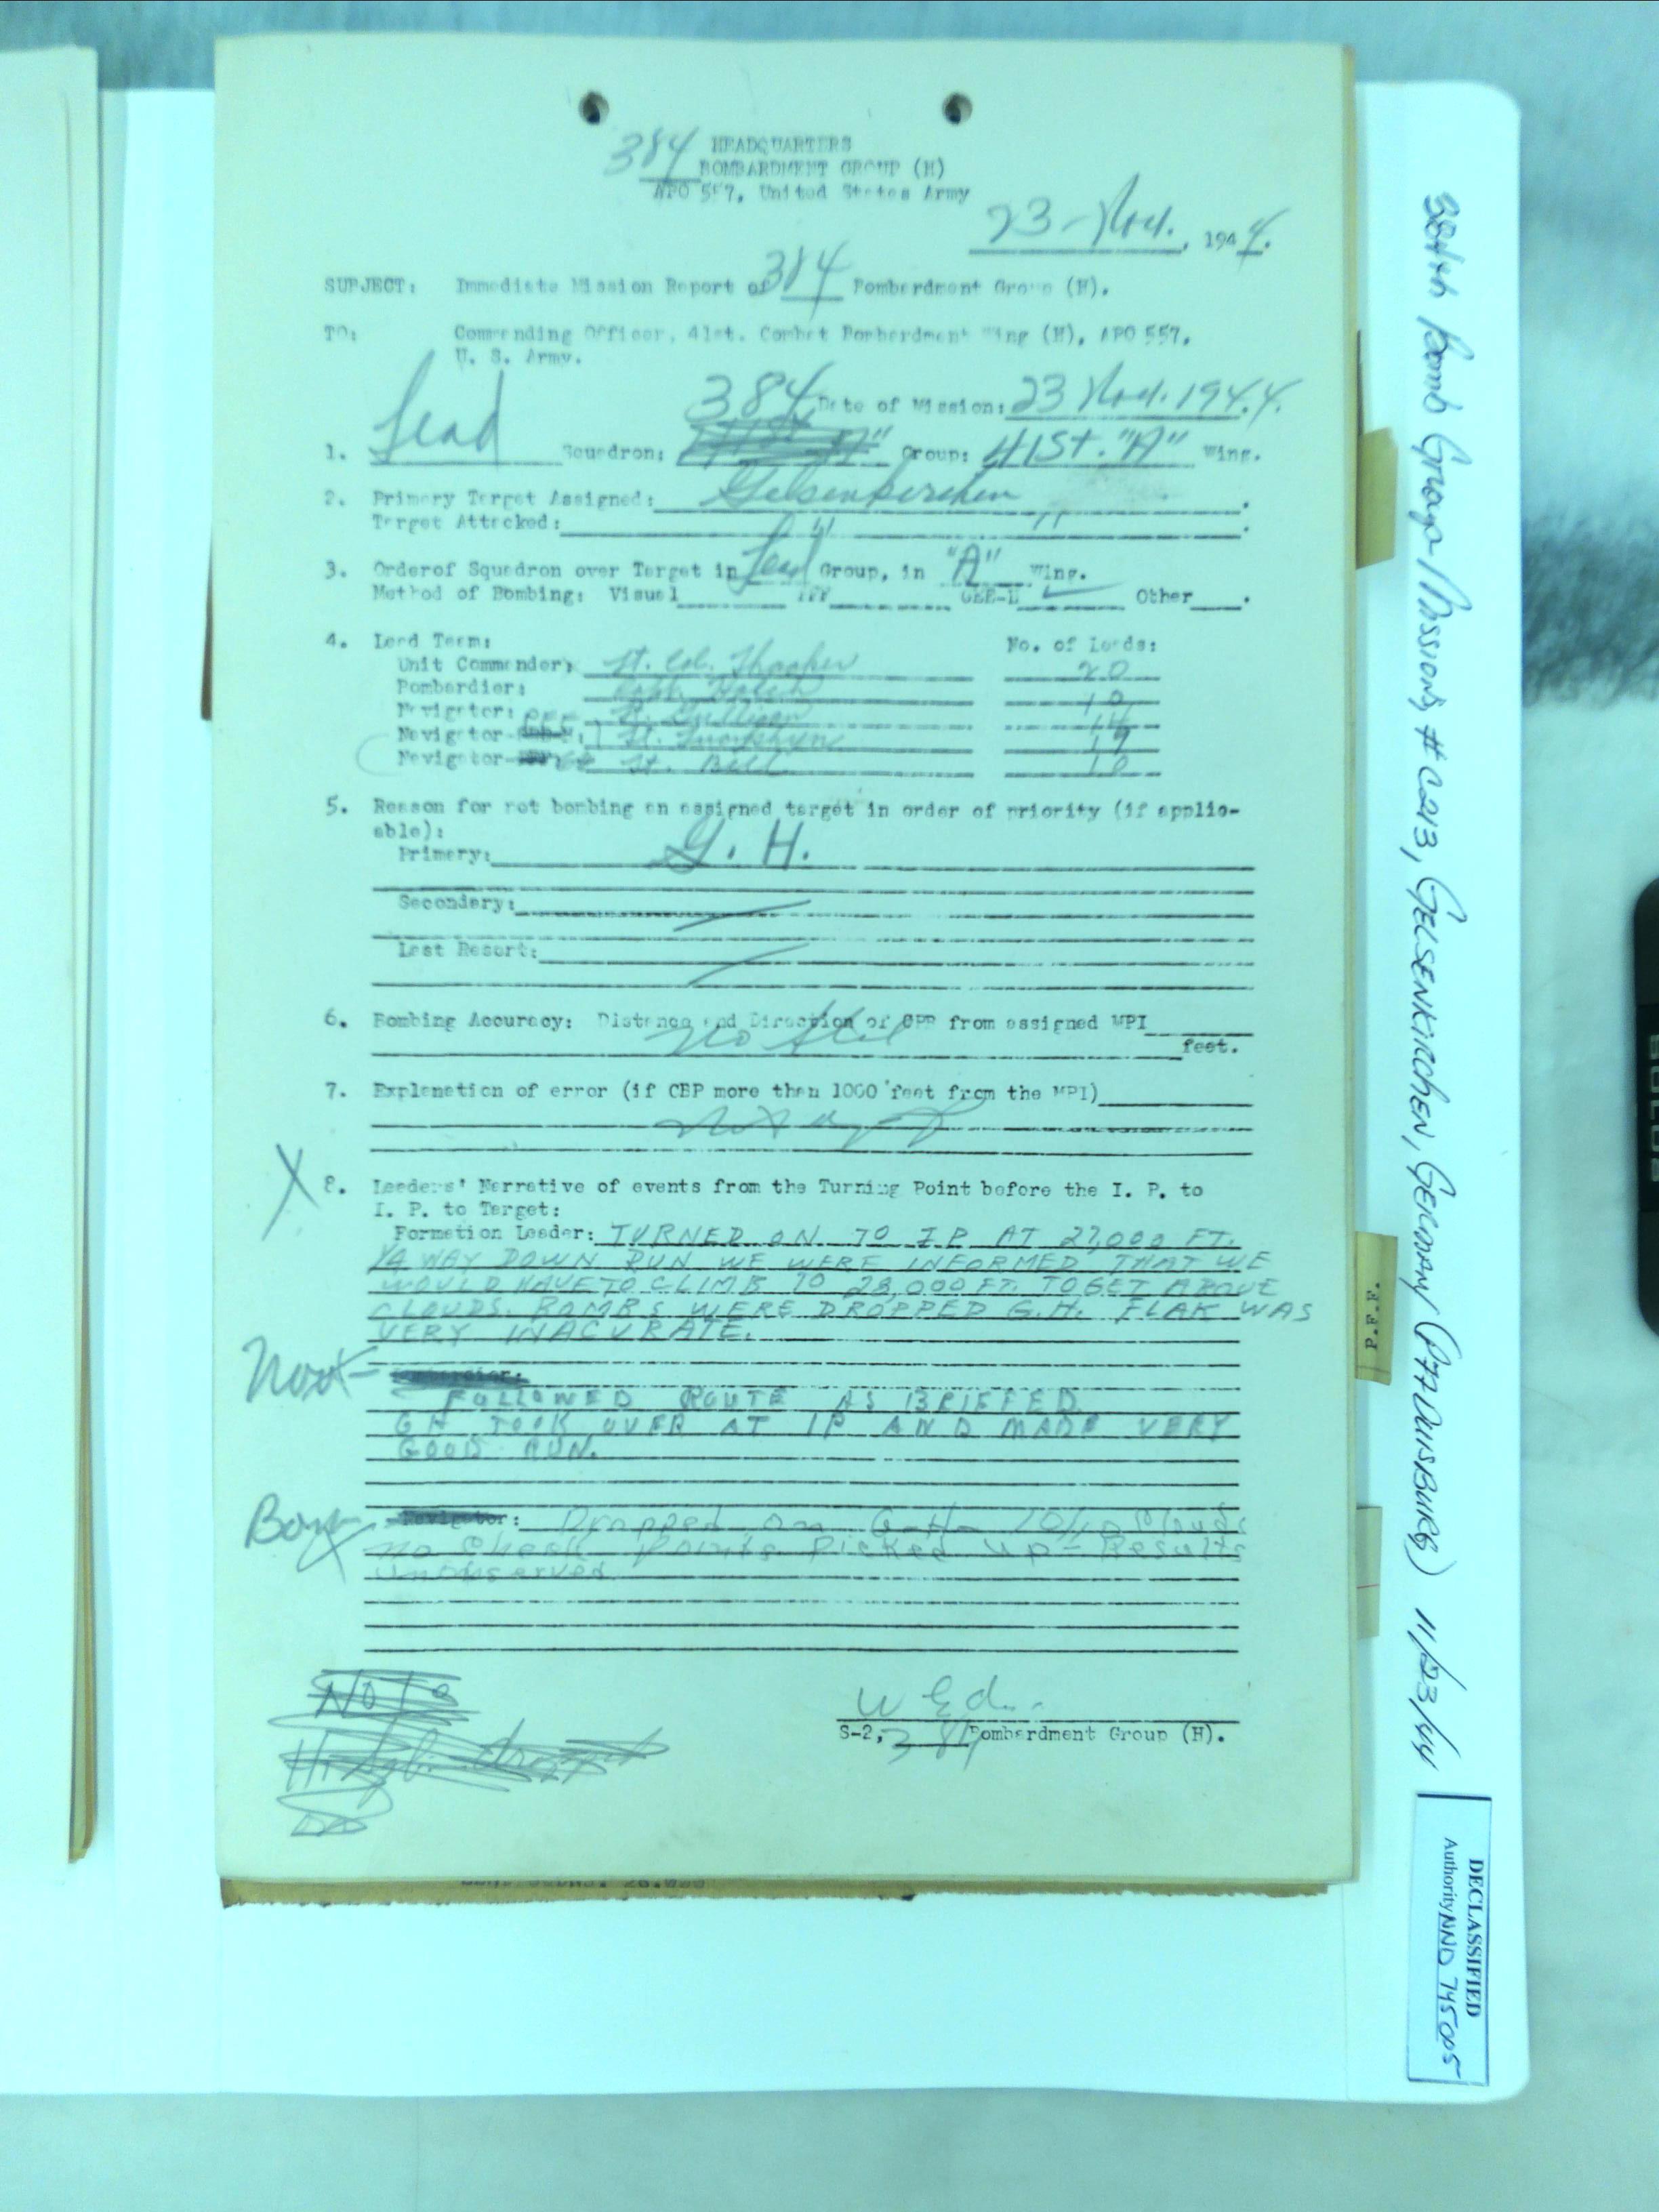 384 HEADQUARTERS
BOMBARDMENT GROUP (H)
APO 557, United States Army
23-Nov., 1944.
SUBJECT: Immediate Mission Report of 384 Bombardment Group (H).
TO: Commanding Officer, 41st. Combat Bombardment Wing (H), APO 557,
U. S. Army.
384 Date of Mission: 23 Nov. 1944.
1. Lead Squadron: Group: 41st. "A" Wing.
2. Primary Target Assigned: Gelsenkirchen.
Target Attacked: " ".
3. Order of Squadron over Target in Lead Group, in "A" Wing.
Method of Bombing: Visual PFF GEE-H ✓ Other.
4. Lead Team: No. of Leads:
Unit Commander: Lt. Col. 20
Bombardier: Capt. 10
Navigator: 14
Navigator PFF: Lt. 19
Navigator GH Lt. Bell 10
5. Reason for not bombing an assigned target in order of priority (if applic-
able):
Primary: G. H.
Secondary:
Last Resort:
6. Bombing Accuracy: Distance and Direction of CPB from assigned MPI
feet.
7. Explanation of error (if CBP more than 1000 feet from the MPI)
X 8. Leaders' Narrative of events from the Turning Point before the I. P. to
I. P. to Target:
Formation Leader: TURNED ON TO IP AT 27,000 FT.
1/4 WAY DOWN RUN WE WERE INFORMED THAT WE
WOULD HAVE TO CLIMB TO 28,000 FT. TO GET ABOVE
CLOUDS. BOMBS WERE DROPPED G.H. FLAK WAS
VERY INACURATE.
FOLLOWED ROUTE AS BRIEFED.
GH TOOK OVER AT IP AND MADE VERY
GOOD RUN.
Navigator: Dropped on G-H- 10/10 Clouds
no Check points Picked up - Results
unobserved
S-2, 384 Bombardment Group (H).
384th Bomb Group Mission # C213, GELSENKIRCHEN, GERMANY (AA DUISBURG) 11/23/44
P.F.F.
DECLASSIFIED
Authority NND 745005